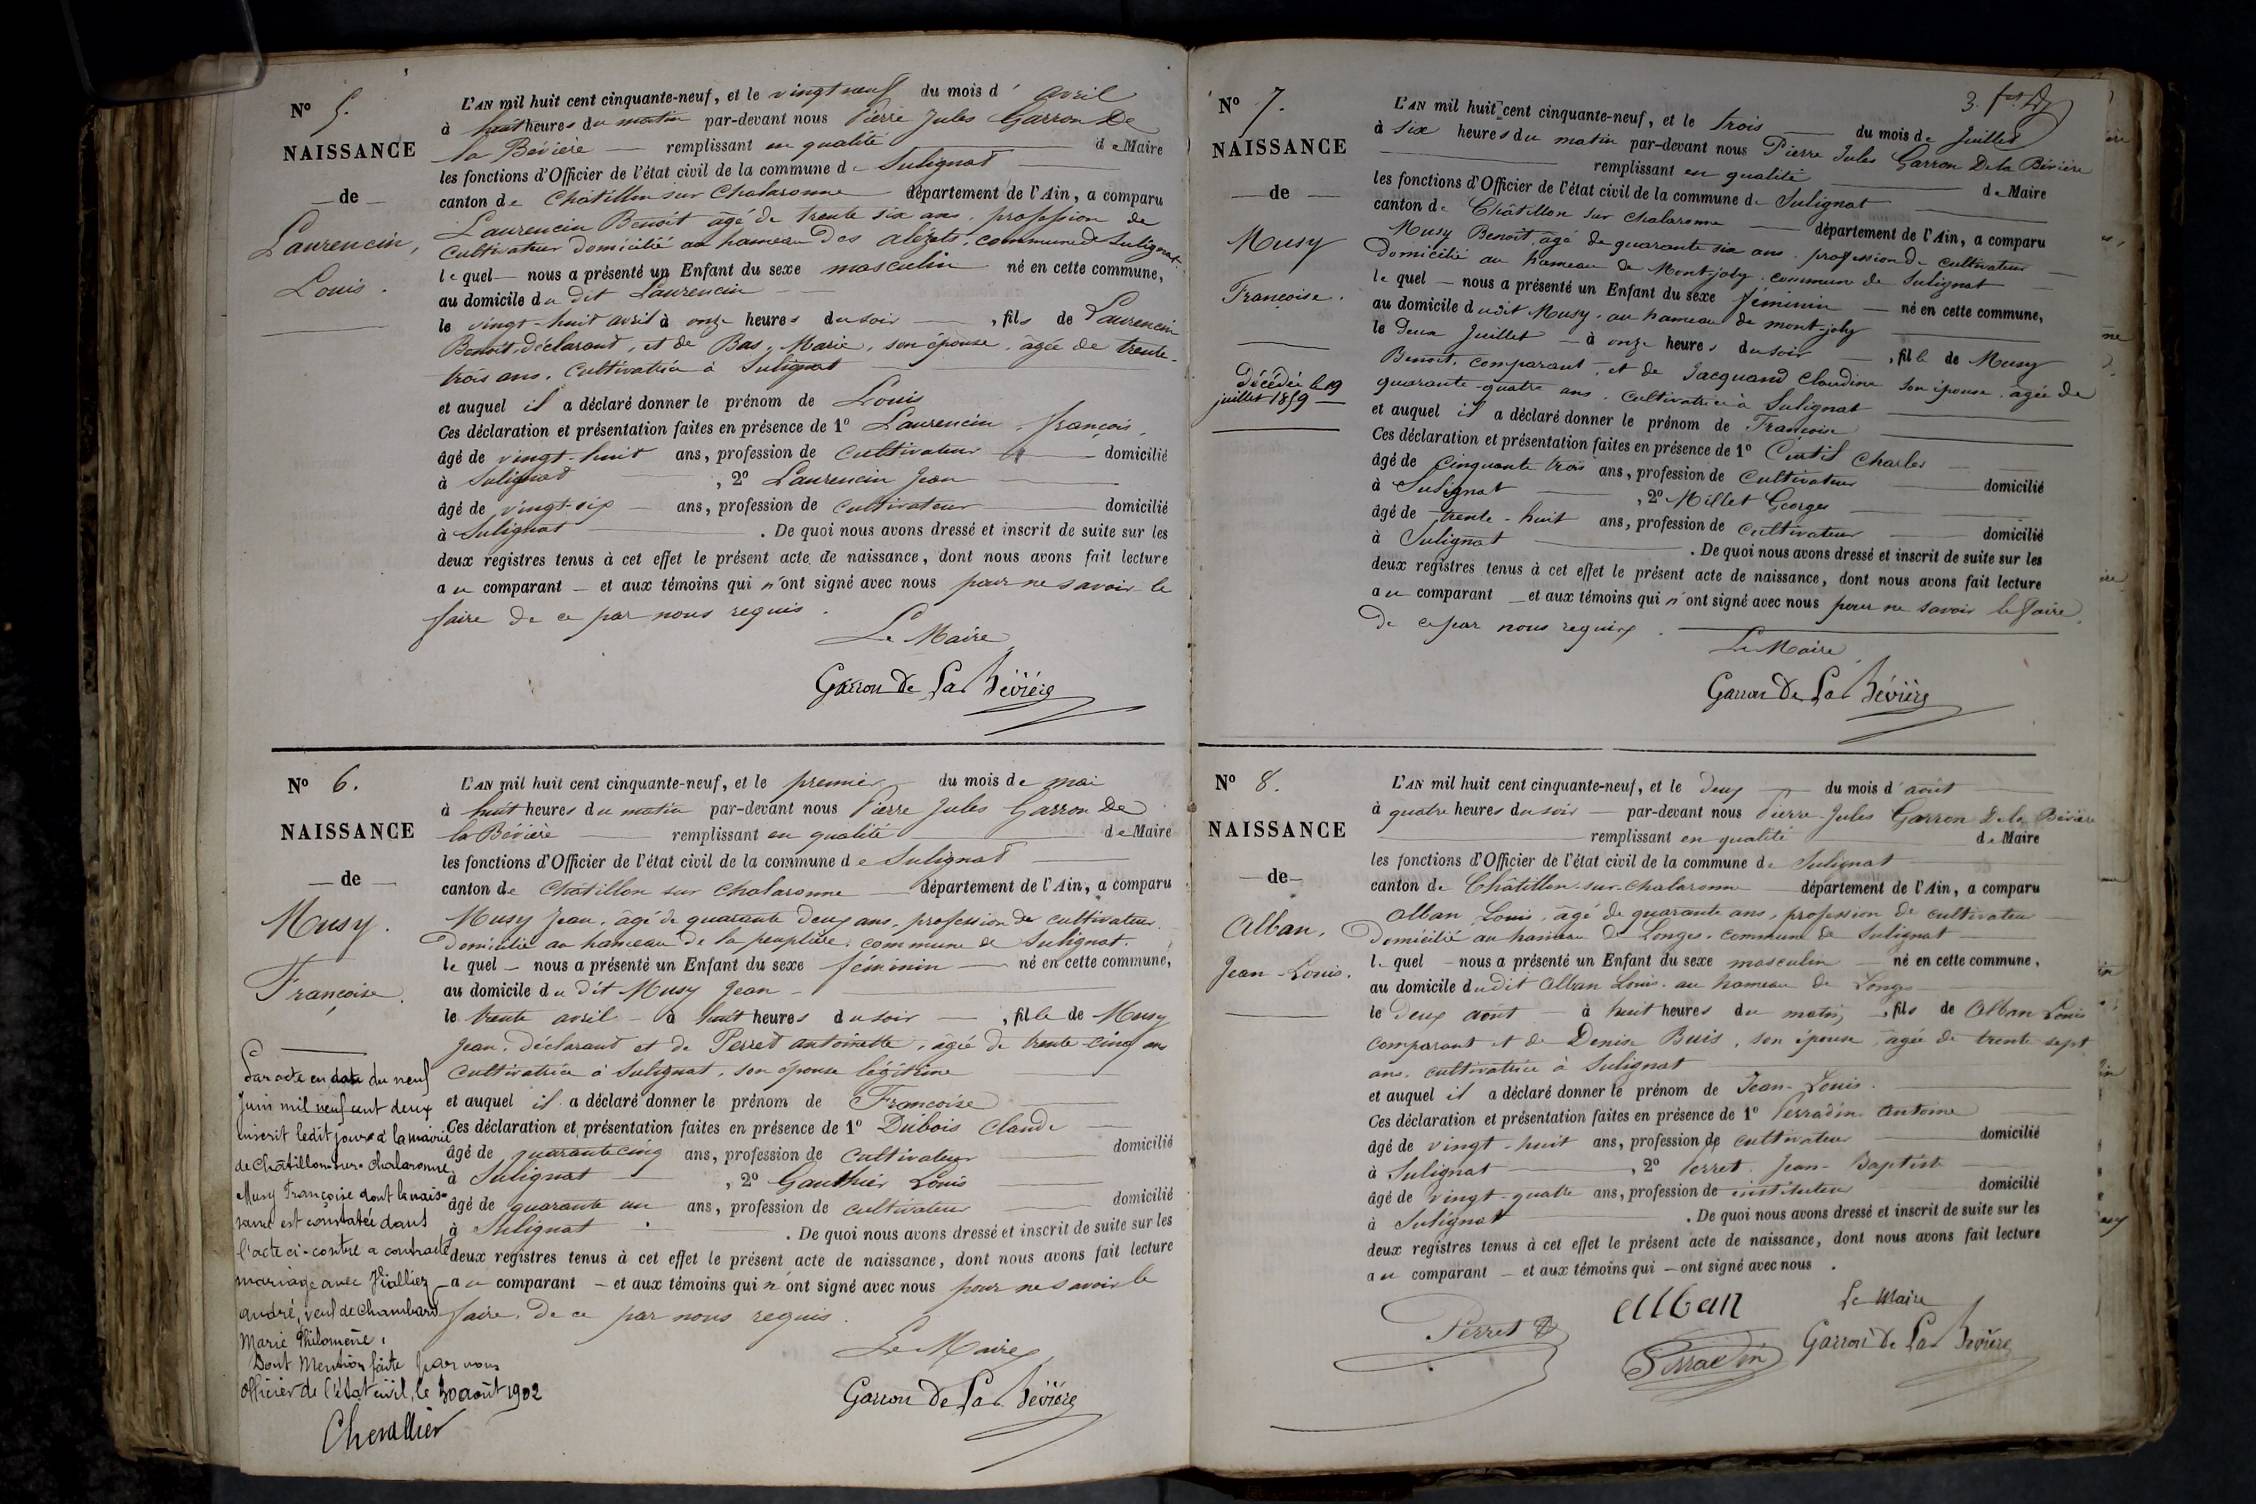 N° 5.
NAISSANCE
de
Laurencin,
Louis.
L'AN mil huit cent cinquante-neuf, et le vingt neuf du mois d' avril
à huit heures du matin par-devant nous Pierre Jules Garron De
la Bévière remplissant en qualité de Maire
les fonctions d'Officier de l'état civil de la commune de Sulignat
canton de Châtillon sur Chalaronne département de l'Ain, a comparu
Laurencin Benoit âgé de trente six ans, profession de
Cultivateur domicilié au hameau des alézets, commune de Sulignat.
lequel nous a présenté un Enfant du sexe masculin né en cette commune,
au domicile du dit Laurencin
le vingt-huit avril à onze heures du soir, fils de Laurencin
Benoit, déclarant, et de Bas, Marie, son épouse, âgée de trente-
trois ans, Cultivatrice à Sulignat
et auquel il a déclaré donner le prénom de Louis
Ces déclaration et présentation faites en présence de 1° Laurencin, françois,
âgé de vingt-huit ans, profession de Cultivateur domicilié
à Sulignat, 2° Laurencin Jean
âgé de vingt-six ans, profession de cultivateur domicilié
à Sulignat. De quoi nous avons dressé et inscrit de suite sur les
deux registres tenus à cet effet le présent acte de naissance, dont nous avons fait lecture
au comparant et aux témoins qui n'ont signé avec nous pour ne savoir le
faire de ce par nous requis.
Le Maire
Garron De La Bévière
N° 6.
NAISSANCE
de
Musy.
Françoise.
Par acte en date du neuf
Juin mil neuf cent deux
inscrit ledit jour à la mairie
de Châtillon-sur-Chalaronne
Musy Françoise dont la nais-
sance est constatée dans
l'acte ci-contre a contracté
mariage avec Vialliez
andré, veuf de Chambard
Marie Philomène,
Dont Mention faite par nous
officier de l'état civil, le 30 août 1902
Chevallier
L'AN mil huit cent cinquante-neuf, et le premier du mois de mai
à huit heures du matin par-devant nous Pierre Jules Garron De
la Bévière remplissant en qualité de Maire
les fonctions d'Officier de l'état civil de la commune de Sulignat
canton de Chatillon sur Chalaronne département de l'Ain, a comparu
Musy Jean, âgé de quarante deux ans, profession de cultivateur,
Domicilié au hameau de la peuplière, commune de Sulignat.
lequel nous a présenté un Enfant du sexe féminin né en cette commune,
au domicile du dit Musy Jean
le trente avril à huit heures du soir, fille de Musy
Jean, déclarant et de Perret antoinette, agée de trente-cinq ans
Cultivatrice à Sulignat, son épouse légitime
et auquel il a déclaré donner le prénom de Françoise
Ces déclaration et présentation faites en présence de 1° Dubois Claude
âgé de quarante cinq ans, profession de cultivateur domicilié
à Sulignat, 2° Gauthier Louis
âgé de quarante un ans, profession de cultivateur domicilié
à Sulignat. De quoi nous avons dressé et inscrit de suite sur les
deux registres tenus à cet effet le présent acte de naissance, dont nous avons fait lecture
au comparant et aux témoins qui n'ont signé avec nous pour ne savoir le
faire, de ce par nous requis.
Le Maire
Garron De La Bévière
3.
N° 7.
NAISSANCE
de
Musy
Françoise.
décédée le 19
juillet 1859
L'AN mil huit cent cinquante-neuf, et le trois du mois de Juillet
à six heures du matin par-devant nous Pierre Jules Garron De la Bévière
remplissant en qualité de Maire
les fonctions d'Officier de l'état civil de la commune de Sulignat
canton de Châtillon sur Chalaronne département de l'Ain, a comparu
Musy Benoit, âgé de quarante six ans, profession de cultivateur
Domicilié au hameau de Mont-joly, commune de Sulignat
lequel nous a présenté un Enfant du sexe féminin né en cette commune,
au domicile dudit Musy, au hameau de mont-joly
le deux Juillet à onze heures du soir, fille de Musy
Benoit, comparant, et de Jacquand Claudine son épouse, agée de
quarante-quatre ans, cultivatrice à Sulignat
et auquel il a déclaré donner le prénom de Françoise
Ces déclaration et présentation faites en présence de 1° Curtil Charles
âgé de cinquante trois ans, profession de cultivateur domicilié
à Sulignat, 2° Millet Georges
âgé de trente-huit ans, profession de cultivateur domicilié
à Sulignat. De quoi nous avons dressé et inscrit de suite sur les
deux registres tenus à cet effet le présent acte de naissance, dont nous avons fait lecture
au comparant et aux témoins qui n'ont signé avec nous pour ne savoir le faire,
de ce par nous requis.
Le Maire
Garron De La Bévière
N° 8.
NAISSANCE
de
Alban,
Jean-Louis.
L'AN mil huit cent cinquante-neuf, et le deux du mois d'août
à quatre heures du soir par-devant nous Pierre-Jules Garron De la Bévière
remplissant en qualité de Maire
les fonctions d'Officier de l'état civil de la commune de Sulignat
canton de Châtillon-sur-Chalaronne département de l'Ain, a comparu
Alban Louis, âgé de quarante ans, profession de cultivateur
Domicilié au hameau de Longes, commune de Sulignat
lequel nous a présenté un Enfant du sexe masculin né en cette commune,
au domicile dudit Alban Louis, au hameau de Longes
le deux août à huit heures du matin, fils de Alban Louis
comparant et de Denise Buis, son épouse, âgée de trente sept
ans, cultivatrice à Sulignat
et auquel il a déclaré donner le prénom de Jean-Louis.
Ces déclaration et présentation faites en présence de 1° Perradin Antoine
âgé de vingt-huit ans, profession de cultivateur domicilié
à Sulignat, 2° Perret Jean-Baptiste
âgé de vingt-quatre ans, profession de instituteur domicilié
à Sulignat. De quoi nous avons dressé et inscrit de suite sur les
deux registres tenus à cet effet le présent acte de naissance, dont nous avons fait lecture
au comparant et aux témoins qui ont signé avec nous.
Perret
Alban
Perradin
Le Maire
Garron De La Bévière